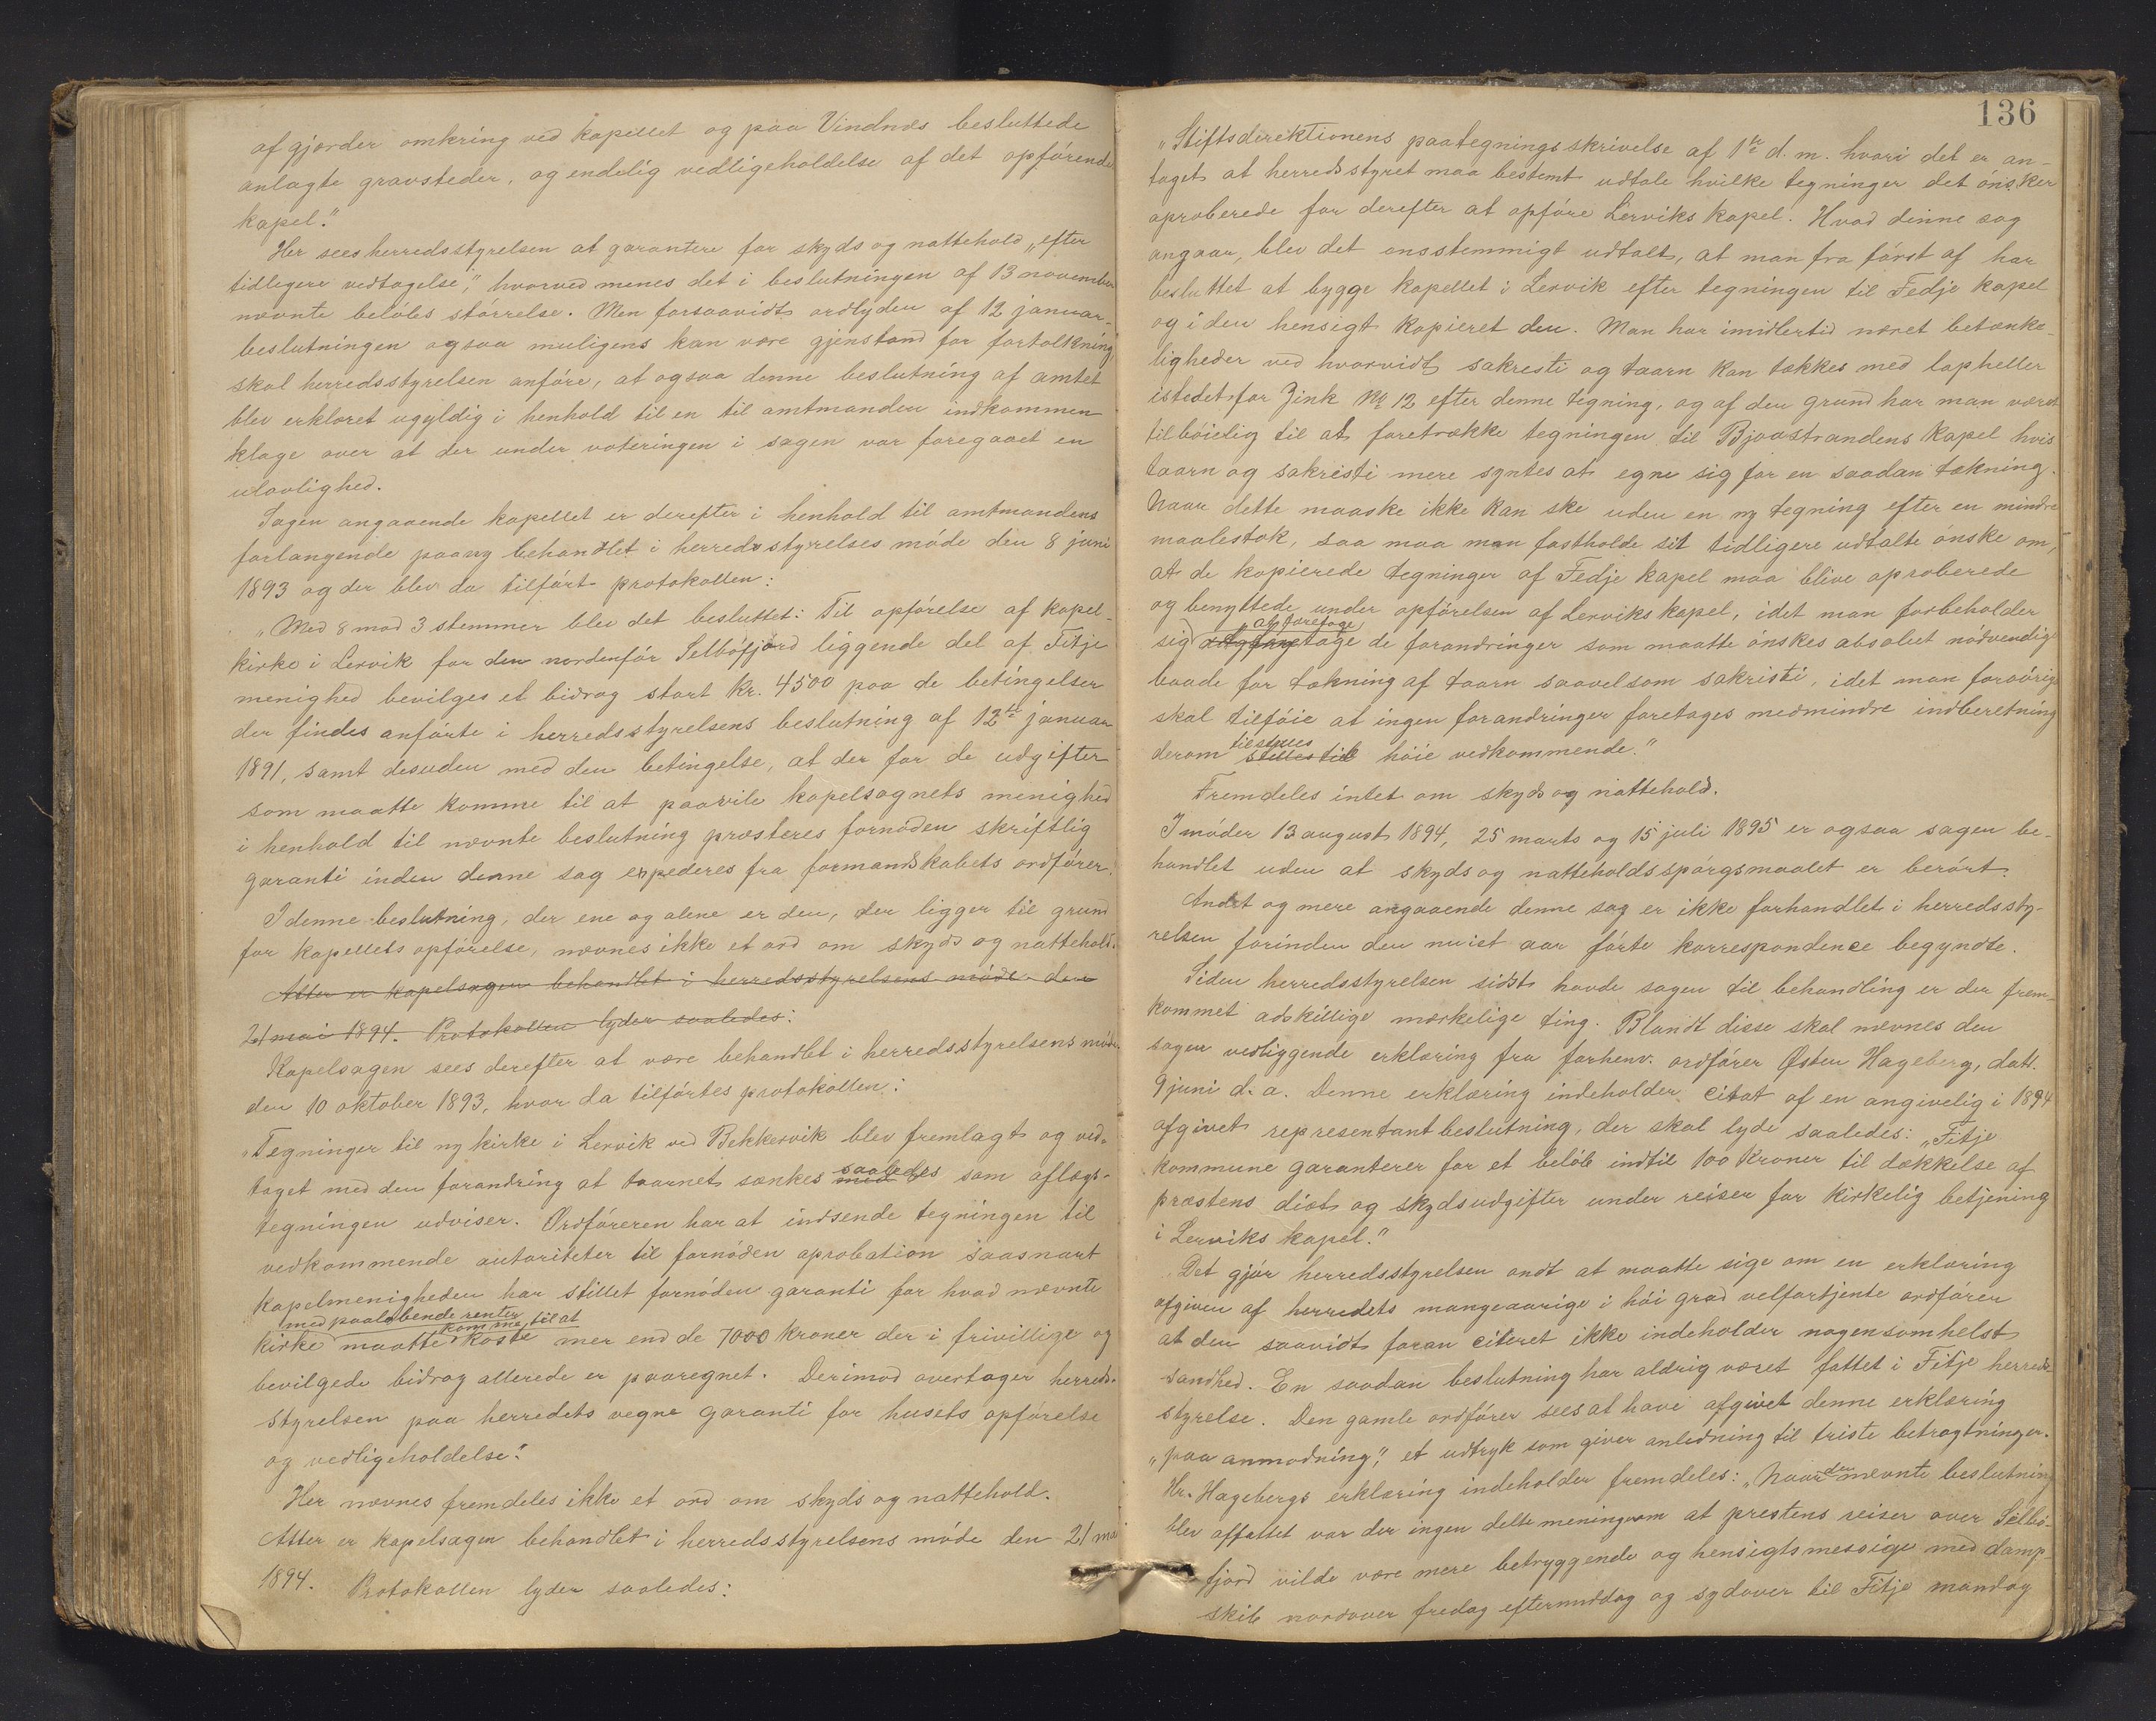 af gjærder omkring ved kapellet og paa Vindnæs besluttede
anlagte gravsteder, og endelig vedligeholdelse af det opførende
kapel."
Her sees herredsstyrelsen at garantere for skyds og nattehold „efter
tidligere vedtagelse", hvorved menes det i beslutningen af 13 november
nævnte beløbs størrelse. Men forsaavidt ordlyden af 12 januar-
beslutningen ogsaa muligens kan være gjenstand for fortolkning
skal herredsstyrelsen anføre, at ogsaa denne beslutning af amtet
blev erklæret ugyldig i henhold til en til amtmanden indkommen
klage over at der under voteringen i sagen var foregaaet en
ulovlighed.
Sagen angaaende kapellet er derefter i henhold til amtmandens
forlangende paany behandlet i herredsstyrelses møde den 8 juni
1893 og der blev da tilført protokollen:
„Med 8 mod 3 stemmer blev det besluttet: Til opførelse af kapel-
kirke i Lervik for den nordenfor Selbøfjord liggende del af Fitje
menighed bevilges et bidrag stort kr. 4500 paa de betingelser
der findes anførte i herredsstyrelsens beslutning af 12te januar
1891, samt desuden med den betingelse, at der for de udgifter
som maatte komme til at paavile kapelsognets menighed
i henhold til nævnte beslutning præsteres fornøden skriftlig
garanti inden denne sag expederes fra formandskabets ordfører.
I denne beslutning, der ene og alene er den, der ligger til grund
for kapellets opførelse, nævnes ikke et ord om skyds og nattehold.
Atter er kapelsagen behandlet i herredsstyrelsens møde den
21 mai 1894. Protokollen lyder saaledes:
Kapelsagen sees derefter at være behandlet i herredsstyrelsens møde
den 10 oktober 1893, hvor da tilførtes protokollen:
„Tegninger til ny kirke i Lervik ved Bekkervik blev fremlagt og ved-
taget med den forandring at taarnet sænkes saaledes som aflags-
tegningen udviser. Ordføreren har at indsende tegningen til
vedkommende autoriteter til fornøden aprobation saasnart
kapelmenigheden har stillet fornøden garanti for hvad nævnte
med paaløbende renter komme til at
kirke maatte koste mer end de 7000 kroner der i frivillige og
bevilgede bidrag allerede er paaregnet. Derimod overtager herreds-
styrelsen paa herredets vegne garanti for husets opførelse
og vedligeholdelse."
Her nævnes fremdeles ikke et ord om skyds og nattehold.
Atter er kapelsagen behandlet i herredsstyrelsens møde den 21 mai
1894. Protokollen lyder saaledes:
136
„Stiftsdirektionens paategningsskrivelse af 1te d. m. hvori det er an-
taget at herredsstyret maa bestemt udtale hvilke tegninger det ønsker
aproberede for derefter at opføre Lerviks kapel. Hvad denne sag
angaar, blev det ensstemmigt udtalt, at man fra først af har
besluttet at bygge kapellet i Lervik efter tegningen til Fedje kapel
og i den hensigt kopieret den. Man har imidlertid næret betænke-
ligheder ved hvorvidt sakresti og taarn kan tækkes med lapheller
istedetfor Zink No 12 efter denne tegning, og af den grund har man været
tilbøielig til at foretrække tegningen til Bjoastrandens kapel hvis
taarn og sakristi mere syntes at egne sig for en saadan tækning.
Naar dette maaske ikke kan ske uden en ny tegning efter en mindre
maalestok, saa maa man fastholde sit tidligere udtalte ønske om,
at de kopierede tegninger af Fedje kapel maa blive aproberede
og benyttede under opførelsen af Lerviks kapel, idet man forbeholder
at foretage
sig de forandringer som maatte ønskes absolut nødvendige
baade for tækning af taarn saavelsom sakristi, idet man forøvrig
skal tilføie at ingen forandringer foretages medmindre indberetning
tilstilles
derom stilles til høie vedkommende."
Fremdeles intet om skyds og nattehold.
I møder 13 august 1894, 25 marts og 15 juli 1895 er ogsaa sagen be-
handlet uden at skyds og natteholdsspørgsmaalet er berørt.
Andet og mere angaaende denne sag er ikke forhandlet i herredssty-
relsen forinden den nu iet aar førte korrespondence begyndte.
Siden herredsstyrelsen sidst havde sagen til behandling er der frem-
kommet adskillige mærkelige ting. Blandt disse skal nævnes den
sagen vedliggende erklæring fra forhenv. ordfører Østen Hageberg, datt.
9 juni d. a. Denne erklæring indeholder citat af en angivelig i 1894
afgivet representantbeslutning, der skal lyde saaledes: „Fitje
kommune garanterer for et beløb indtil 100 kroner til dækkelse af
præstens diæt og skydsudgifter under reiser for kirkelig betjening
i Lerviks kapel."
Det gjør herredsstyrelsen ondt at maatte sige om en erklæring
afgiven af herredets mangeaarige i høi grad velfortjente ordfører
at den saavidt foran citeret ikke indeholder nogensomhelst
sandhed. En saadan beslutning har aldrig været fattet i Fitje herreds-
styrelse. Den gamle ordfører sees at have afgivet denne erklæring
„paa anmodning", et udtryk som giver anledning til triste betragtninger.
Hr. Hagebergs erklæring indeholder fremdeles: „Naar den nævnte beslutning
blev affattet var der ingen delte meninger om at prestens reiser over Selbø-
fjord vilde være mere betryggende og hensigtsmessige med damp-
skib nordover fredag eftermiddag og sydover til Fitje mandag